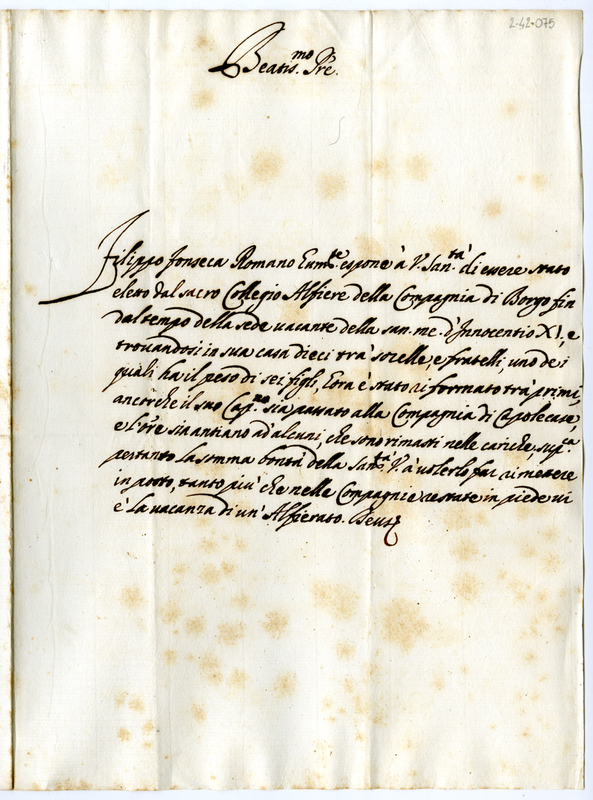 2-42-075
Beatis.mo Pre.
Filippo Fonseca Romano Eum.te espone à V. San.tà di essere stato
eletto dal sacro Collegio Alfiere della Compagnia di Borgo fin
dal tempo della sede uacante della san. me. d'Innocentio XI, e
trouandosi in sua casa dieci trà sorelle, e fratelli, uno de i
quali hà il peso di sei figli, Eora è stato riformato trà primi,
ancorche il suo Cap.no sia passato alla Compagnia di Capolecase,
e l'Ore sia antiano ad'alcuni, che sono rimasti nelle cariche, sup.ca
pertanto La somma bontà della San.tà V. à uolerlo far rimettere
in posto, tanto più che nelle Compagnie restate in piede ui
è La uacanza di un' Alfierato.